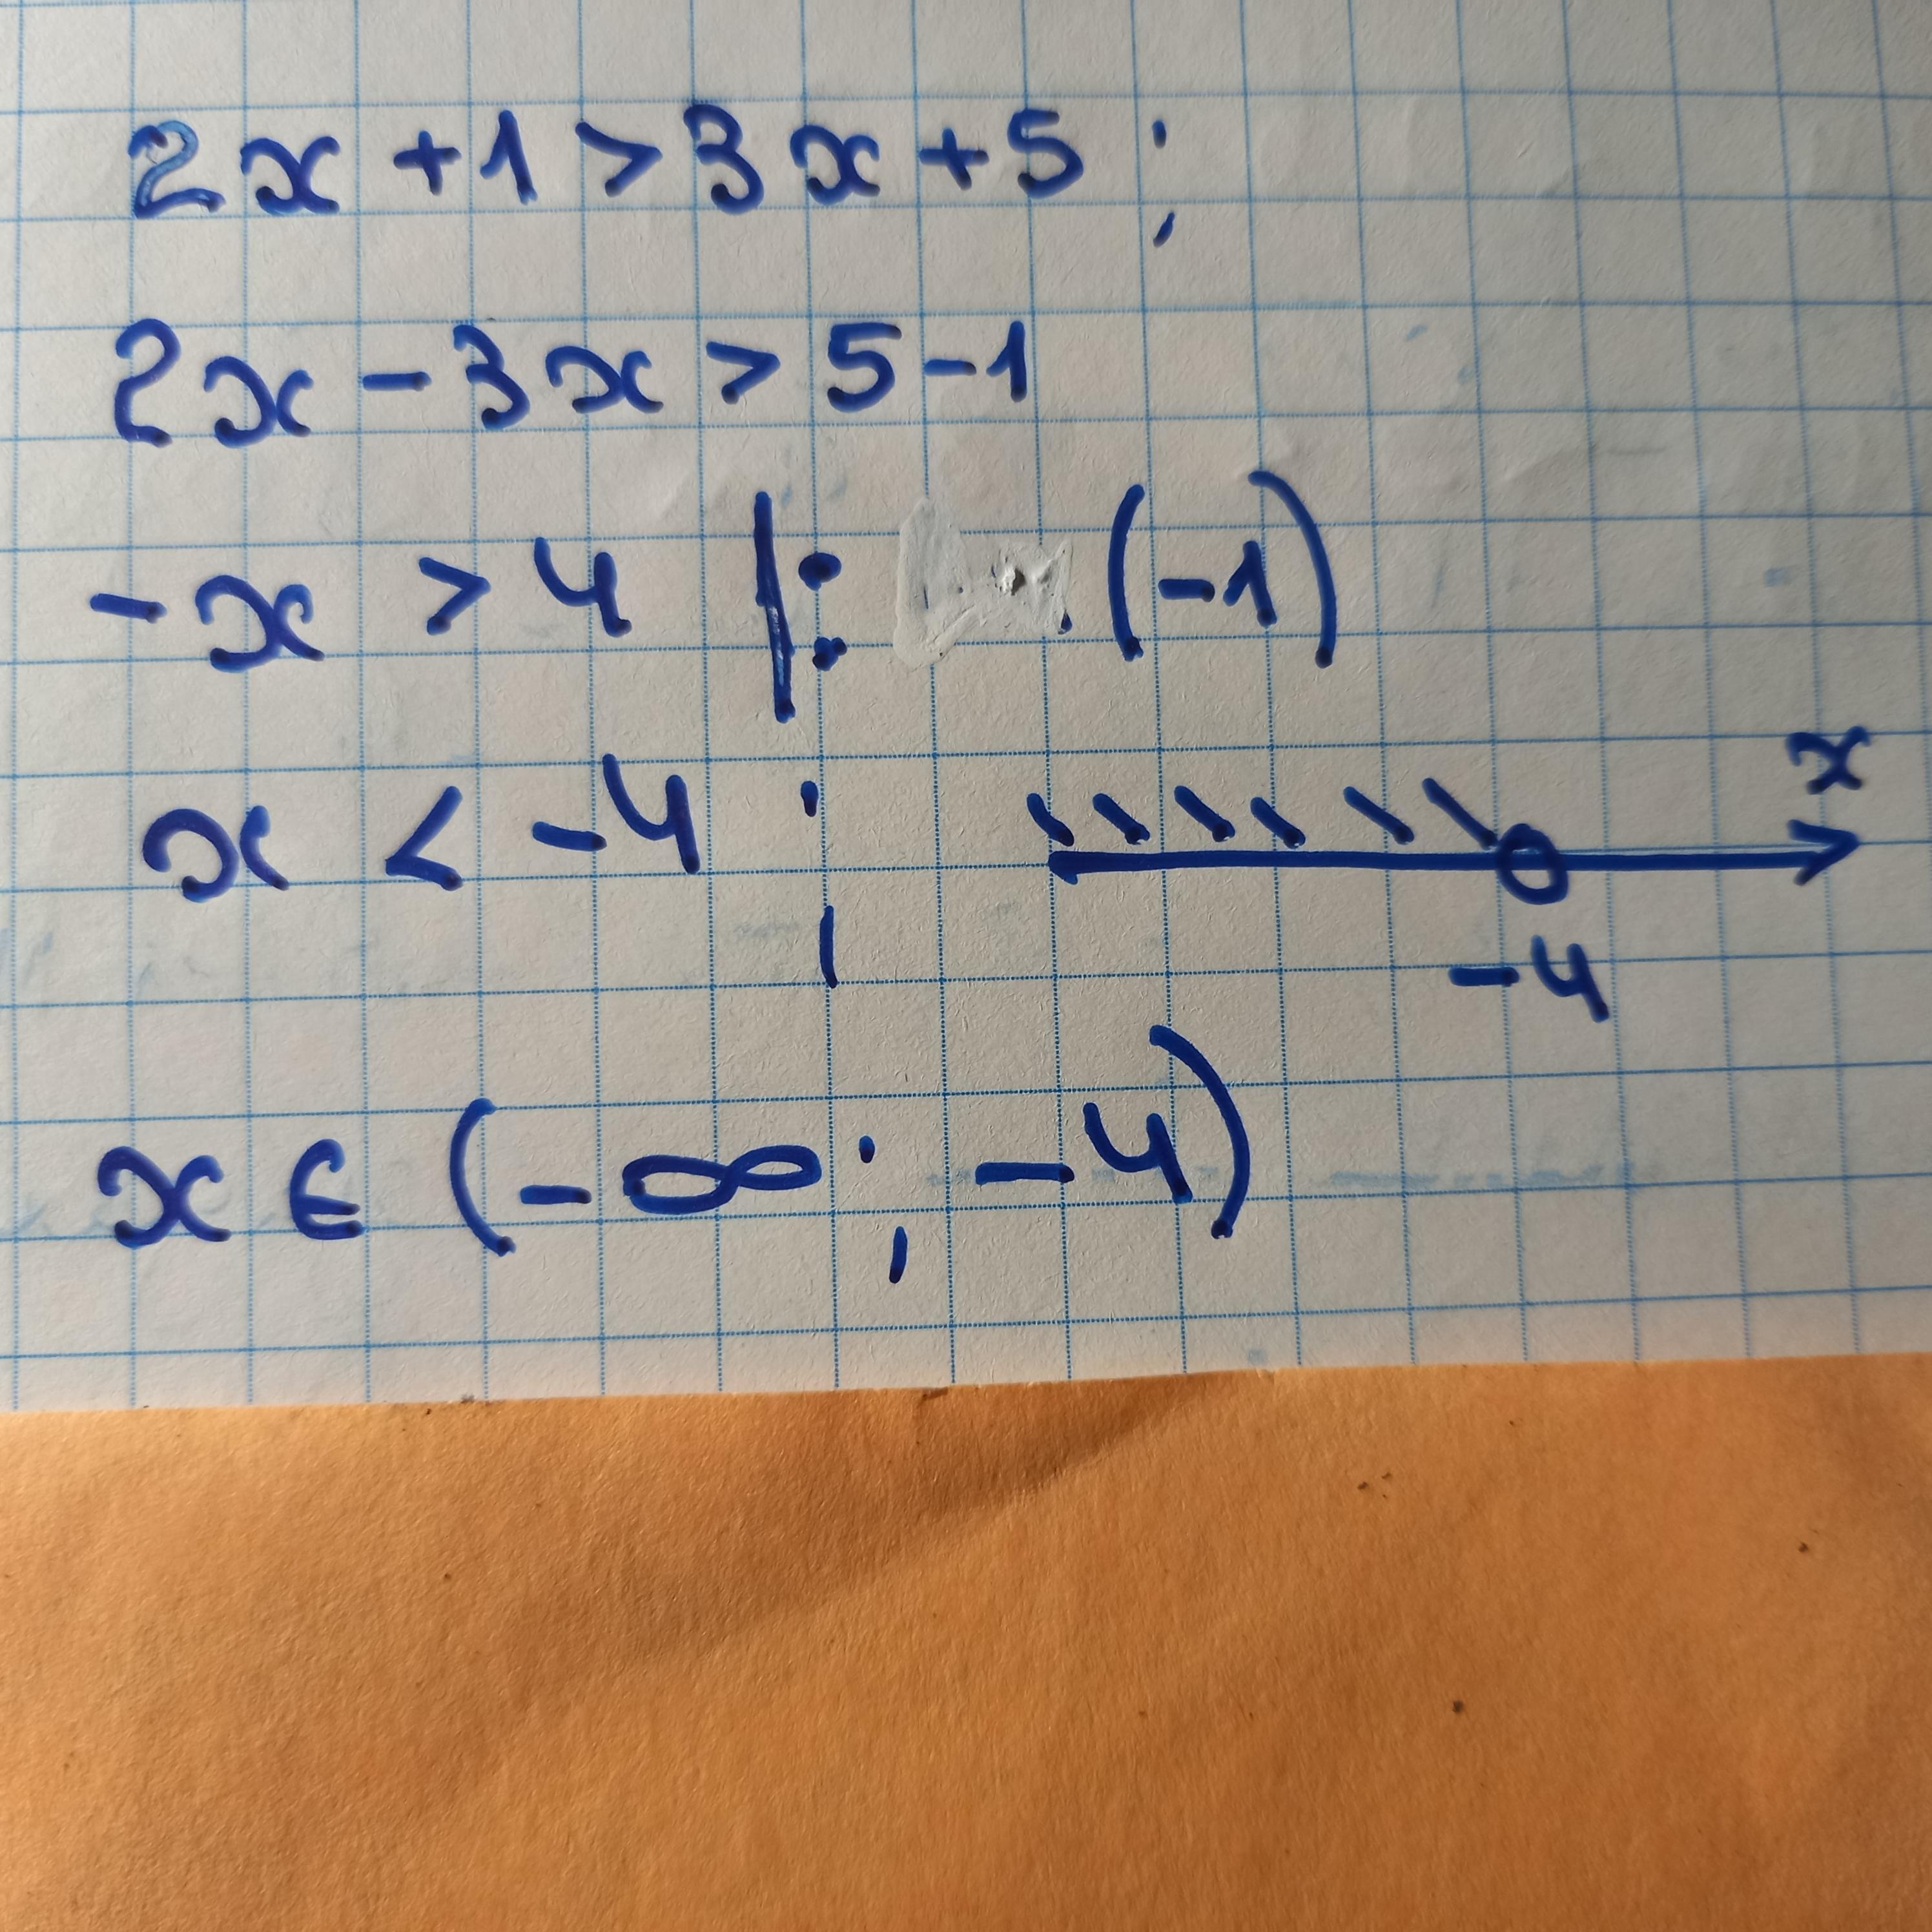 2x+1>3x+5;
2x-3x>5-1
-x >4 |: (-1)
x < -4 ;
x
-4
x∈(-∞;-4)